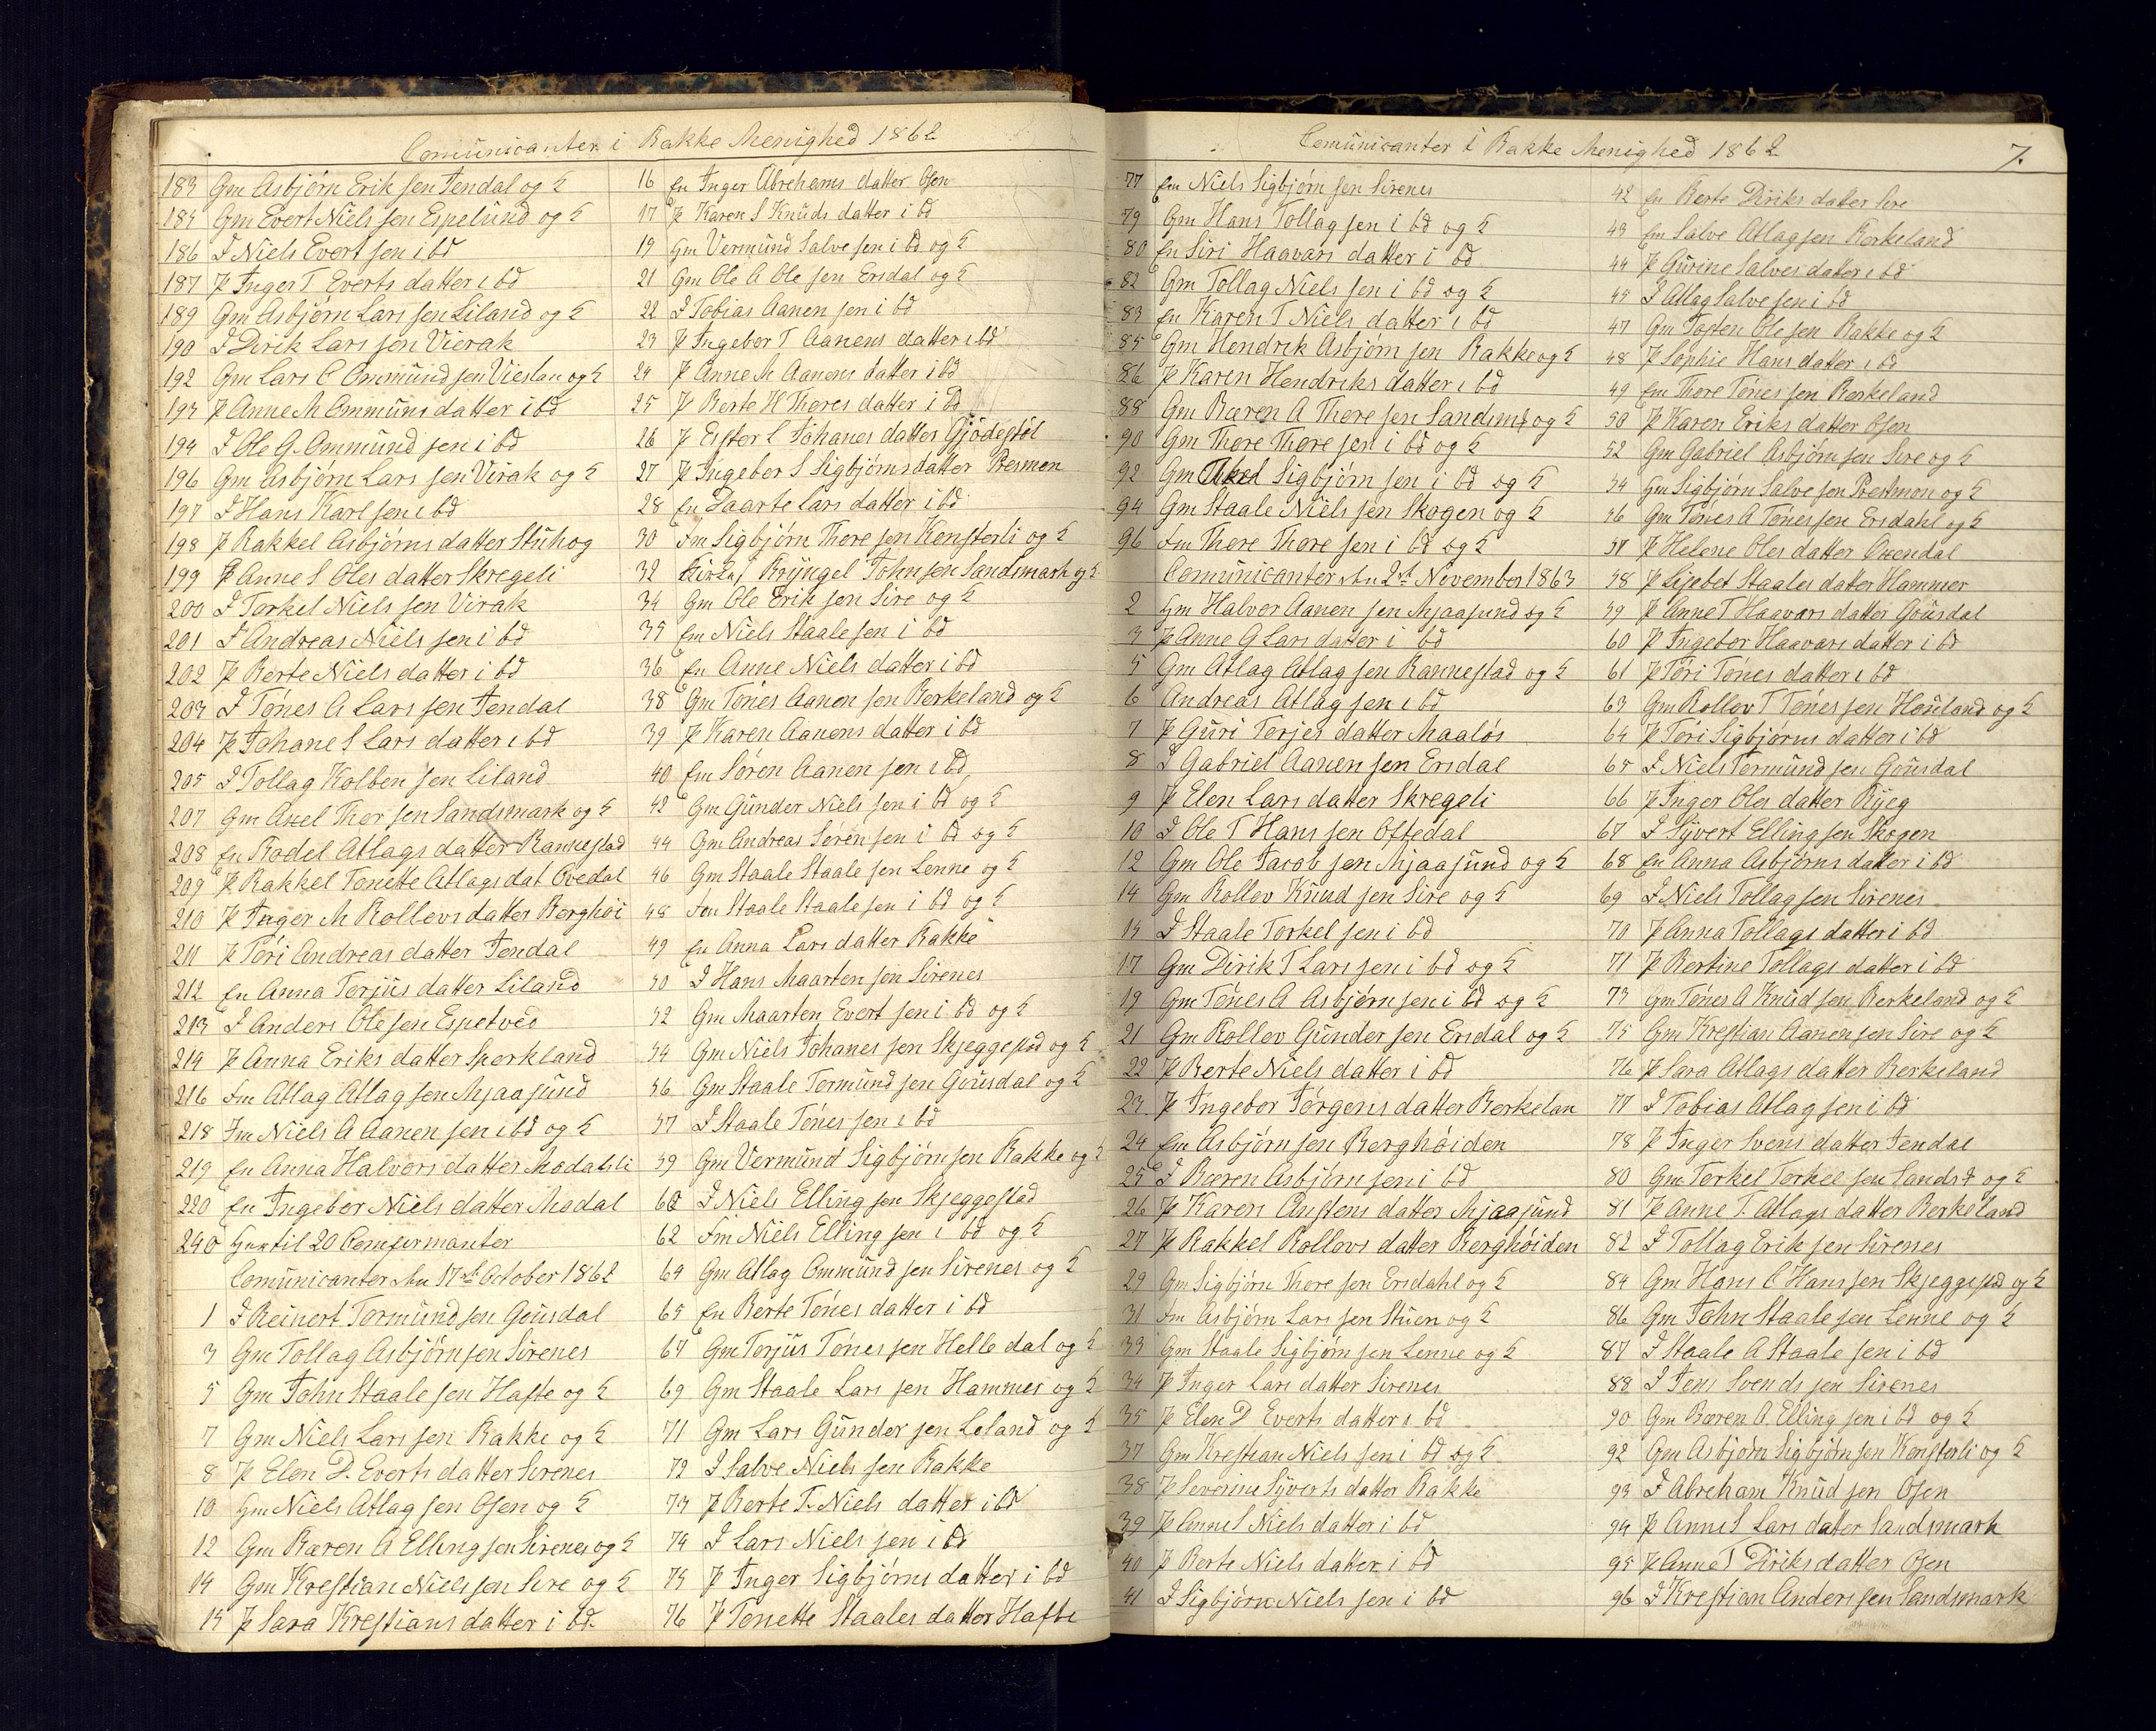 Comunicanter i Bakke Menighed 1862
183 Gm Asbjørn Erik sen Jendal og H
185 Gm Evert Niels sen Espelund og H
186 J Niels Evert sen i bd
187 P Inger T Everts datter i bd
189 Gm Asbjørn Lars sen Liland og H
190 J Dirik Lars sen Vierak
192 Gm Lars C Ommund sen og H
193 P Anne M Ommuns datter i bd
194 J Ole G. Ommund sen i bd
196 Gm Asbjørn Lars sen Virak og H
197 J Hans Karl sen i bd
198 P Rakkel Asbjørns datter Stuhog
199 P Anne S Oles datter Skregeli
200 J Torkel Niels sen Virak
201 J Andreas Niels sen i bd
202 P Berte Niels datter i bd
203 J Tønes A Lars sen Jendal
204 P Johane S Lars datter i bd
205 J Tollag Kolben sen Liland
207 Gm Axel Thor sen Sandsmark og H
208 En Rodel Atlags datter Rannestad
209 P Rakkel Tonette Atlags dat Ovedal
210 P Inger M Rollevs datter Berghøi
211 P Tøri Andreas datter Jendal
212 En Anna Terjus datter Liland
213 J Anders Ole sen Espetved
214 P Anna Eriks datter Sporkland
216 Fm Atlag Atlag sen Mjaasund
218 Fm Niels A Aanen sen i bd og H
219 En Anna Halvors datter Modalsli
220 En Ingebor Niels datter Modal
240 20 Confirmanter
Comunicanter den 17de October 1862
1 J Reinert Tormund sen Gousdal
3 Gm Tollag Asbjørn sen Sirenes
5 Gm John Staale sen Hafte og H
7 Gm Niels Lars sen Bakke og H
8 P Elen D. Everts datter Sirenes
10 Gm Niels Atlag sen Osen og H
12 Gm Bæren A Elling sen Sirenes og H
14 Gm Krestian Niels sen Sire og H
15 P Sara Krestians datter i bd
16 En Inger Abrehams datter Osen
17 P Karen S Knuds datter i bd
19 Gm Vermund Salve sen i bd og H
21 Gm Ole A Ole sen Ersdal og H
22 J Tobias Aanen sen i bd
23 P Ingebor T Aanens datter i bd
24 P Anne M Aanens datter i bd
25 P Berte H Thores datter i bd
26 P Ester L Johanes datter Gjødestøl
27 P Ingebor S Sigbjørns datter Presmon
28 En Taarte Lars datter i bd
30 Fm Sigbjørn Thore sen Kensterli og H
32 Bryngel John sen Sandsmark og H
34 Gm Ole Erik sen Sire og H
35 Em Niels Staale sen i bd
36 En Anne Niels datter i bd
38 Gm Tønes Aanen sen Berkeland og H
39 P Karen Aanens datter i bd
40 Em Søren Aanen sen i bd
42 Gm Gunder Niels sen i bd og H
44 Gm Andreas Søren sen i bd og H
46 Gm Staale Staale sen Lenne og H
48 Fm Staale Staale sen i bd og H
49 En Anna Lars datter Bakke
50 J Hans Maarten sen Sirenes
52 Gm Maarten Evert sen i bd og H
54 Gm Niels Johanes sen Skjeggestad og H
56 Gm Staale Tormund sen Gousdal og H
57 J Staale Tønes sen i bd
59 Gm Vermund Sigbjørn sen Bakke og H
60 J Niels Elling sen Skjeggestad
62 Fm Niels Elling sen i bd og H
64 Gm Atlag Ommund sen Sirenes og H
65 En Berte Tønes datter i bd
67 Gm Terjus Tønes sen Helle dal og H
69 Gm Staale Lars sen Hammer og H
71 Gm Lars Gunder sen Loland og H
72 J Salve Niels sen Bakke
73 P Berte T. Niels datter i bd
74 J Lars Niels sen i bd
75 P Inger Sigbjørns datter i bd
76 P Tonette Staales datter Hafte
Comunicanter i Bakke Menighed 1862
7.
77 Em Niels Sigbjørn sen Sirenes
79 Gm Hans Tollag sen i bd og H
80 En Siri Haavars datter i bd
82 Gm Tollag Niels sen i bd og H
83 En Karen T Niels datter i bd
85 Gm Hendrik Asbjørn sen Bakke og H
86 P Karen Hendriks datter i bd
88 Gm Bæren A Thore sen Sandsmk og H
90 Gm Thore Thore sen i bd og H
92 Gm Sigbjørn sen i bd og H
94 Gm Staale Niels sen Skogen og H
96 Fm Thore Thore sen i bd og H
Comunicanter den 2d November 1863
2 Gm Halver Aanen sen Mjaasund og H
3 P Anne G Lars datter i bd
5 Gm Atlag Atlag sen Rannestad og H
6 Andreas Atlag sen i bd
7 P Guri Terjes datter Maaløs
8 J Gabriel Aanen sen Ersdal
9 P Elen Lars datter Skregeli
10 J Ole T Hans sen Oftedal
12 Gm Ole Jacob sen Mjaasund og H
14 Gm Rollov Knud sen Sire og H
15 J Staale Torkel sen i bd
17 Gm Dirik T Lars sen i bd og H
19 Gm Tønes A Asbjørn sen i bd og H
21 Gm Rollov Gunder sen Ersdal og H
22 P Berte Niels datter i bd
23 P Ingebor Jørgens datter Berkelan
24 Em Asbjørn sen Berghøiden
25 J Bæren Asbjørn sen i bd
26 P Karen Anstens datter Mjaasund
27 P Rakkel Rollovs datter Berghøiden
29 Gm Sigbjørn Thore sen Ersdahl og H
31 Fm Asbjørn Lars sen Stuen og H
33 Gm Staale Sigbjørn sen Lenne og H
34 P Inger Lars datter Sirenes
35 P Elen D Everts datter i bd
37 Gm Krestian Niels sen i bd og H
38 P Severine Syverts datter Bakke
39 P Anne S Niels datter i bd
40 P Berte Niels datter i bd
41 J Sigbjørn Niels sen i bd
42 En Berte Diriks datter Sire
43 Em Salve Atlag sen Berkeland
44 P Gurine Salves datter i bd
45 J Atlag Salve sen i bd
47 Gm Tosten Ole sen Bakke og H
48 P Sophie Hans datter i bd
49 Em Thore Tønes sen Berkeland
50 P Karen Eriks datter Osen
52 Gm Gabriel Asbjørn sen Sire og H
54 Gm Sigbjørn Salve sen Prestmon og H
56 Gm Tønes A Tønes sen Ersdahl og H
57 P Helene Oles datter Oxendal
58 P Lisebet Staales datter Hammer
59 P Anne T Haavars datter Gousdal
60 P Ingebor Haavars datter i bd
61 P Tøri Tønes datter i bd
63 Gm Rollov T Tønes sen Houland og H
64 P Tøri Sigbjørns datter i bd
65 J Niels Tormund sen Gousdal
66 P Inger Oles datter Ryeg
67 J Syvert Elling sen Skogen
68 En Anna Asbjørns datter i bd
69 J Niels Tollag sen Sirenes
70 P Anna Tollags datter i bd
71 P Bertine Tollags datter i bd
73 Gm Tønes A Knud sen Berkeland og H
75 Gm Krestian Aanen sen Sire og H
76 P Sara Atlags datter Berkeland
77 J Tobias Atlag sen i bd
78 P Inger Svens datter Jendal
80 Gm Torkel Torkel sen og H
81 P Anne T. Atlags datter Berkeland
82 J Tollag Erik sen Sirenes
84 Gm Hans C Hans sen Skjeggestad og H
86 Gm John Staale sen Lenne og H
87 J Staale A Staale sen i bd
88 J Jens Svends sen Sirenes
90 Gm Bæren O. Elling sen i bd og H
92 Gm Asbjørn Sigbjørn sen Kensterli og H
93 J Abreham Knud sen Osen
94 P Anne S Lars datter Sandsmark
95 P Anne T Diriks datter Osen
96 J Krestian Anders sen Sandsmark